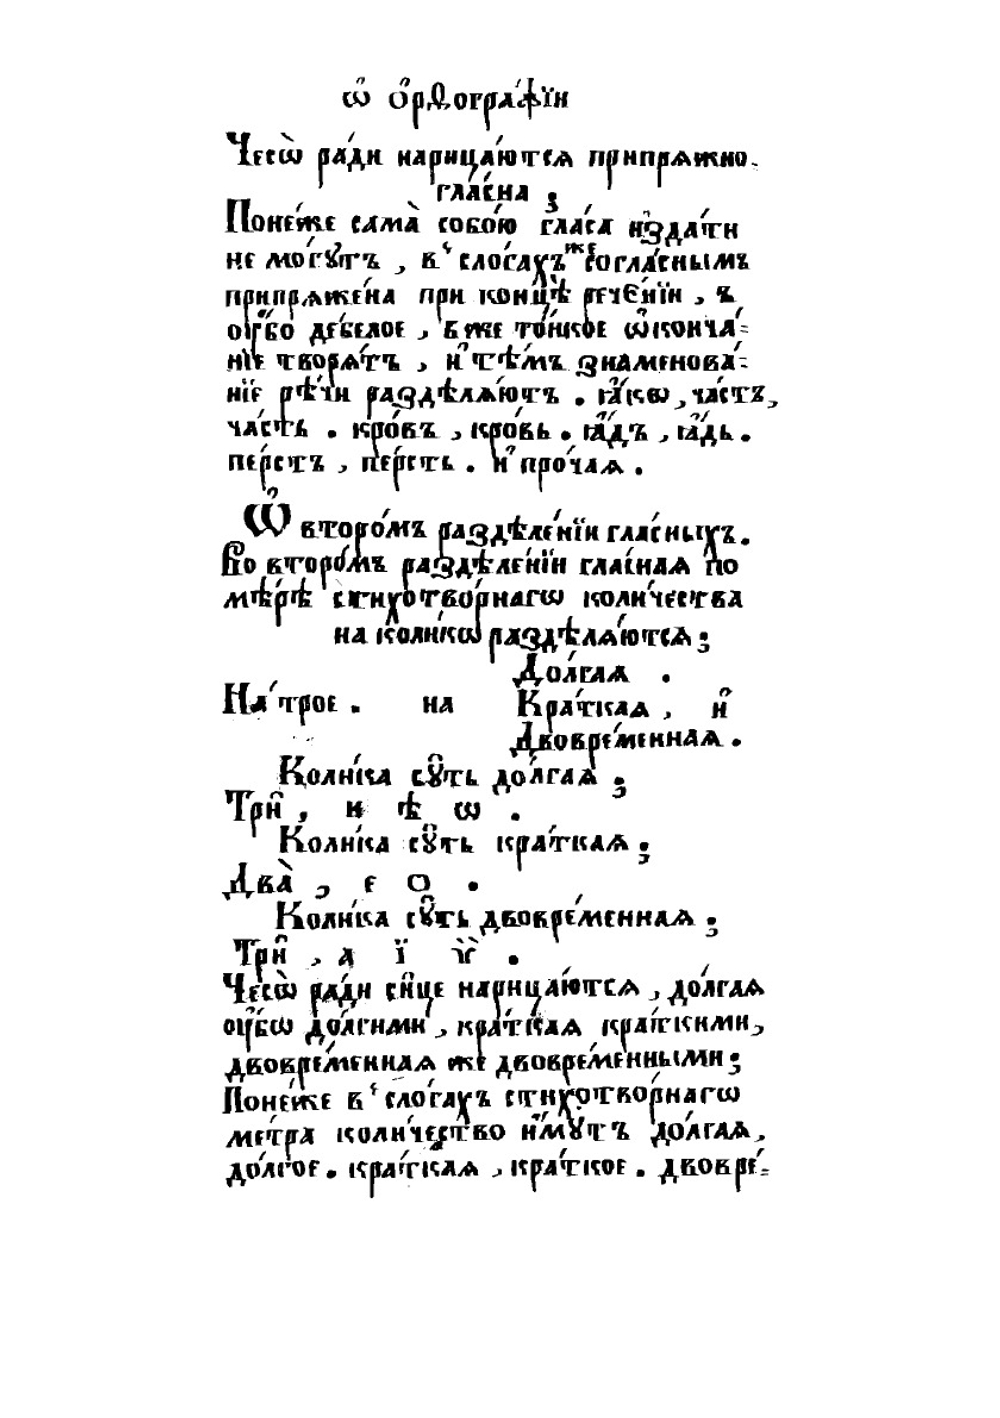 Ѡ҆ О҆рѳогра́фїи
Чесѡ̀ ра́ди нарица́ютсѧ припрѧжно-
гла́сна;
Поне́же сама̀ собо́ю гла́са и҆зда́ти
не мо́гꙋтъ, в̾ сло́гахъ же согла́снымъ
припрѧже́на при концѣ̀ рече́нїи, ъ
ѹ҆́бо дебе́лое, ь же то́нкое ѡ҆конча́=
нїе творѧ́тъ, и҆ тѣ́мъ знаменова́=
нїе рѣ́чи раздѣлѧ́ютъ. ꙗ҆́кѡ, ча́стъ,
ча́сть. кро́въ, кро́вь. ꙗ҆́дъ, ꙗ҆́дь.
пе́рстъ, пе́рсть. и҆ про́чаѧ.
Ѡ҆ второ́мъ раздѣле́нїи гла́сныхъ.
Во второ́мъ раздѣле́нїи гла́снаѧ по
мѣ́рѣ стихотво́рнагѡ коли́чества
на коли́кѡ раздѣлѧ́ютсѧ;
До́лгаѧ .
На́трое . на Кра́ткаѧ , и҆
Двовре́меннаѧ .
Коли́ка сꙋ́ть до́лгаѧ ;
Трѝ , и ѣ ѡ .
Коли́ка сꙋ́ть кра́ткаѧ ;
Два̀ , е о .
Коли́ка сꙋ́ть двовре́меннаѧ ;
Трѝ , а ї ѷ .
Чесѡ̀ ра́ди си́це нарица́ютсѧ, до́лгаѧ
ѹ҆́бѡ до́лгими, кра́ткаѧ кра́ткими,
двовре́меннаѧ же двовре́менными;
Поне́же в̾ сло́гахъ стихотво́рнагѡ
ме́тра коли́чество и҆́мꙋтъ до́лгаѧ,
до́лгое. кра́ткаѧ, кра́ткое. двовре́=